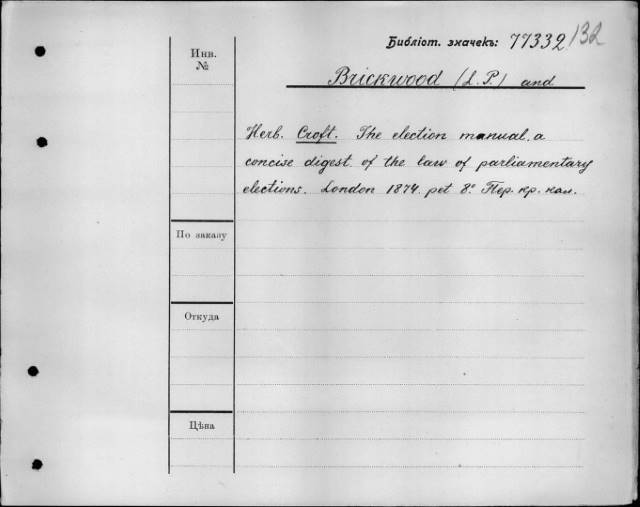 Библіот. значекъ: 77332/132
Инв.
№
Brickwood (L. P.) and
Herb. Croft. The election manual, a
concise digest of the law of parliamentary
elections. London 1874. pet 8° Пер. кр. кал.
По заказу
Откуда
Цѣна